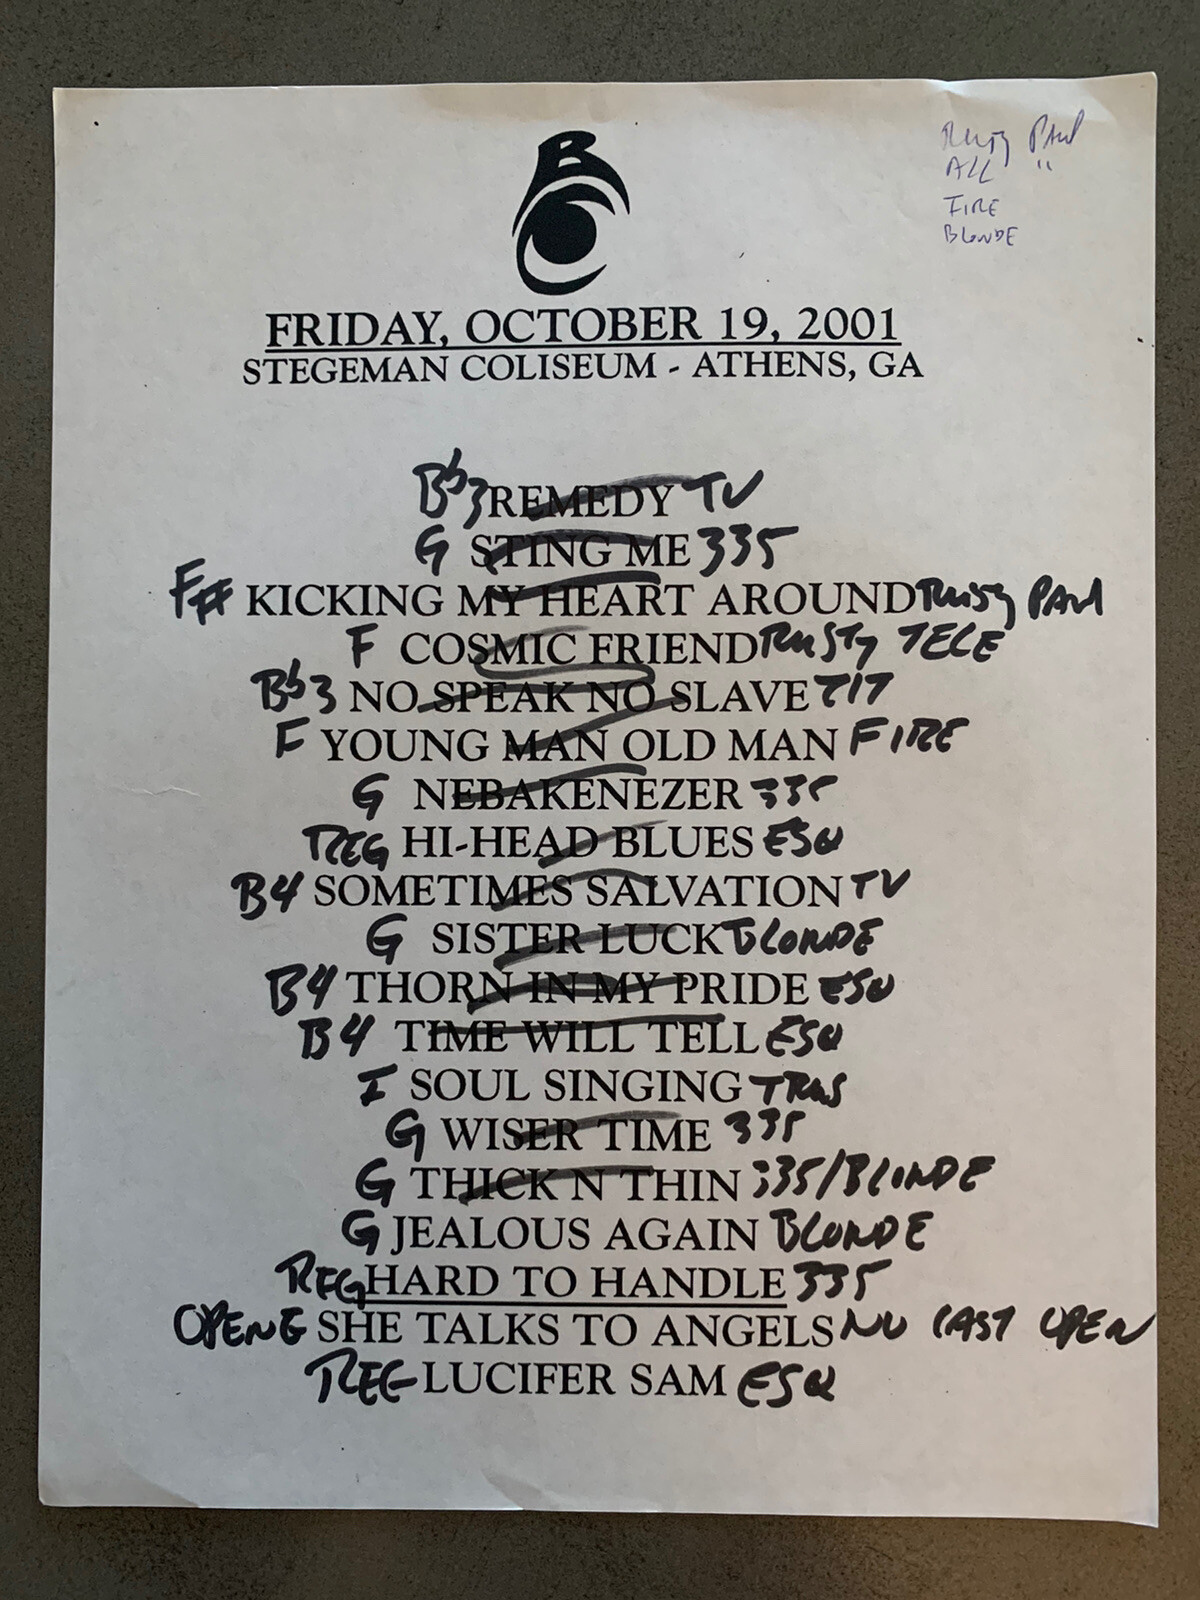 Rusty Paul
ALL "
FIRE
BLONDE
B
FRIDAY, OCTOBER 19, 2001
STEGEMAN COLISEUM - ATHENS, GA
Bb3 REMEDY TV
G STING ME 335
F# KICKING MY HEART AROUND Rusty PAul
F COSMIC FRIEND RUSTy TELE
Bb3 NO SPEAK NO SLAVE 717
F YOUNG MAN OLD MAN FIRE
G NEBAKENEZER 335
REG HI-HEAD BLUES ESQ
B4 SOMETIMES SALVATION TV
G SISTER LUCK BLONDE
B4 THORN IN MY PRIDE ESQ
B4 TIME WILL TELL ESQ
I SOUL SINGING
G WISER TIME 335
G THICK N THIN 335/BLONDE
G JEALOUS AGAIN BLONDE
REG HARD TO HANDLE 335
OPEN E SHE TALKS TO ANGELS NU CAST OPEN
REG LUCIFER SAM ESQ